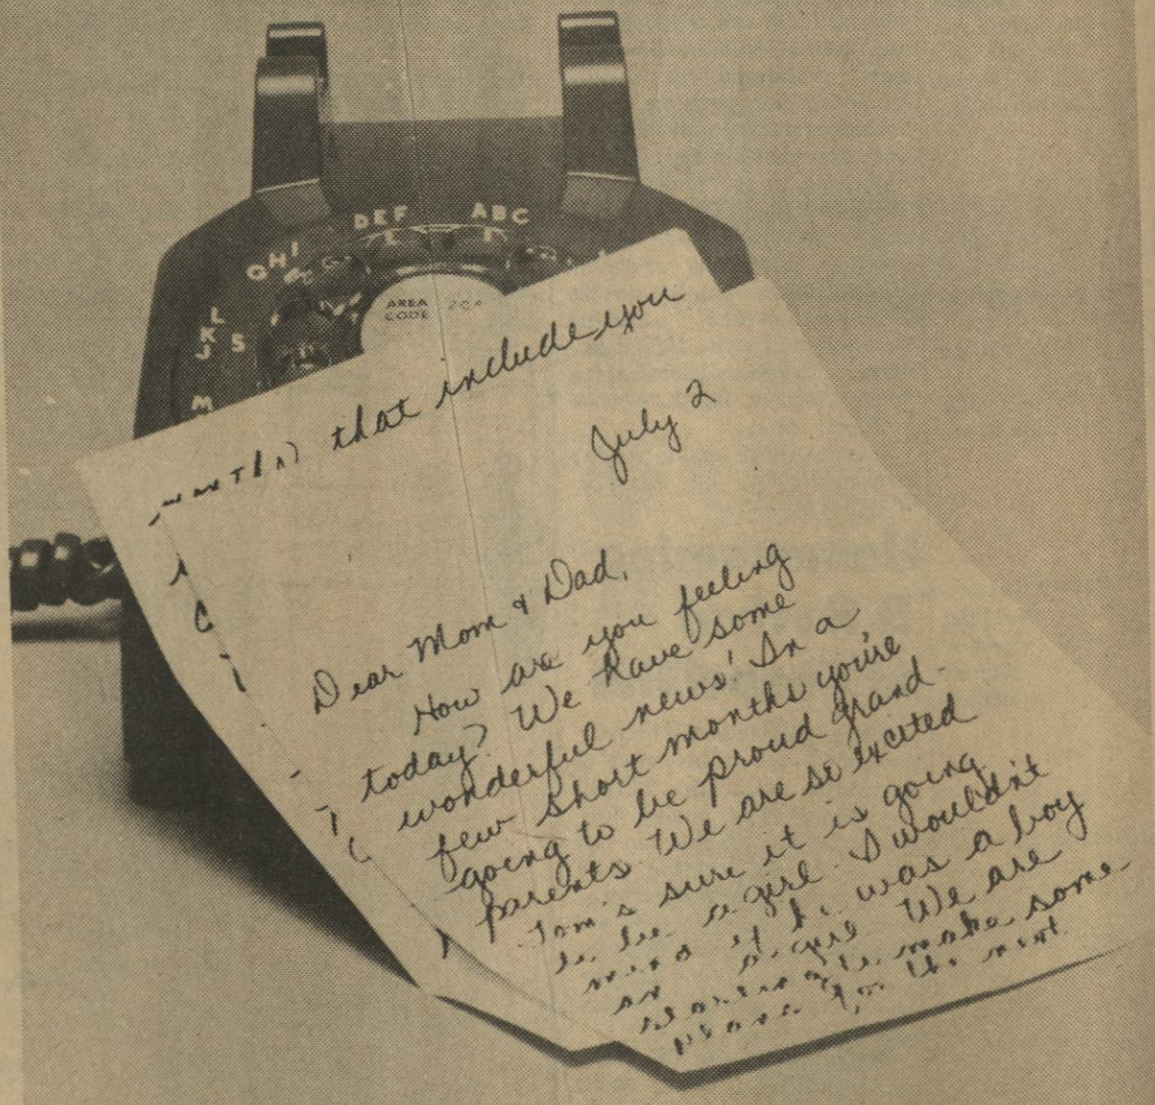 DEF
ABC
GHI
JKL
5
M
AREA
CODE 204
that include you
July 2
Dear Mom & Dad,
How are you feeling
today? We have some
wonderful news! In a
few short months you're
going to be proud grand-
parents. We are so excited
Tom's sure it is going
to be a girl. I wouldn't
mind if he was a boy
or a girl. We are
make some
plans for the next